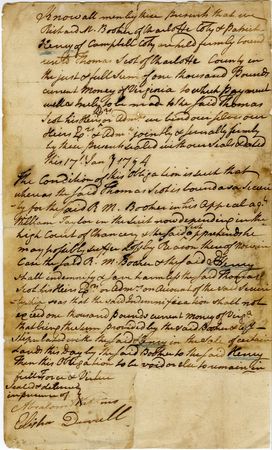 Know all men by these Presents that we
Richard M. Booker of Charlotte Cty & Patrick
Henry of Campbell Cty are held firmly bound
unto Thomas Scot of Charlotte County in
the just & full Sum of one thousand Pounds
current Money of Virginia to which Payment
well & truly to be made to the said Thomas
Scot his Heirs or Admrs we bind ourselves our
Heirs Exrs & Admrs jointly & severally firmly
by these presents sealed with our Seals Dated
this 17 Jany 1794
The Condition of this Obligation is such that
whereas the said Thomas Scot is bound as a Securi
ty for the said R. M. Booker in his Appeal agt
William Taylor in the Suit now depending in the
high Court of Chancery & the said Scot apprehends he
may possibly suffer Loss by Reason thereof Now in
Case the said R. M. Booker & the said Henry
shall indemnify and save harmless the said Thomas
Scot his Heirs Exrs or Admrs on Account of the said Securi
tyship so as that the said Indemnification shall not
exceed one thousand pounds current Money of Virga
that being the Sum provided by the said Booker &
with the said Henry in the Sale of certain
Lands this Day by the said Booker to the said Henry
Then this Obligation to be void or else to remain in
full Force & Virtue
Sealed & delivered
in presence of
Elisha